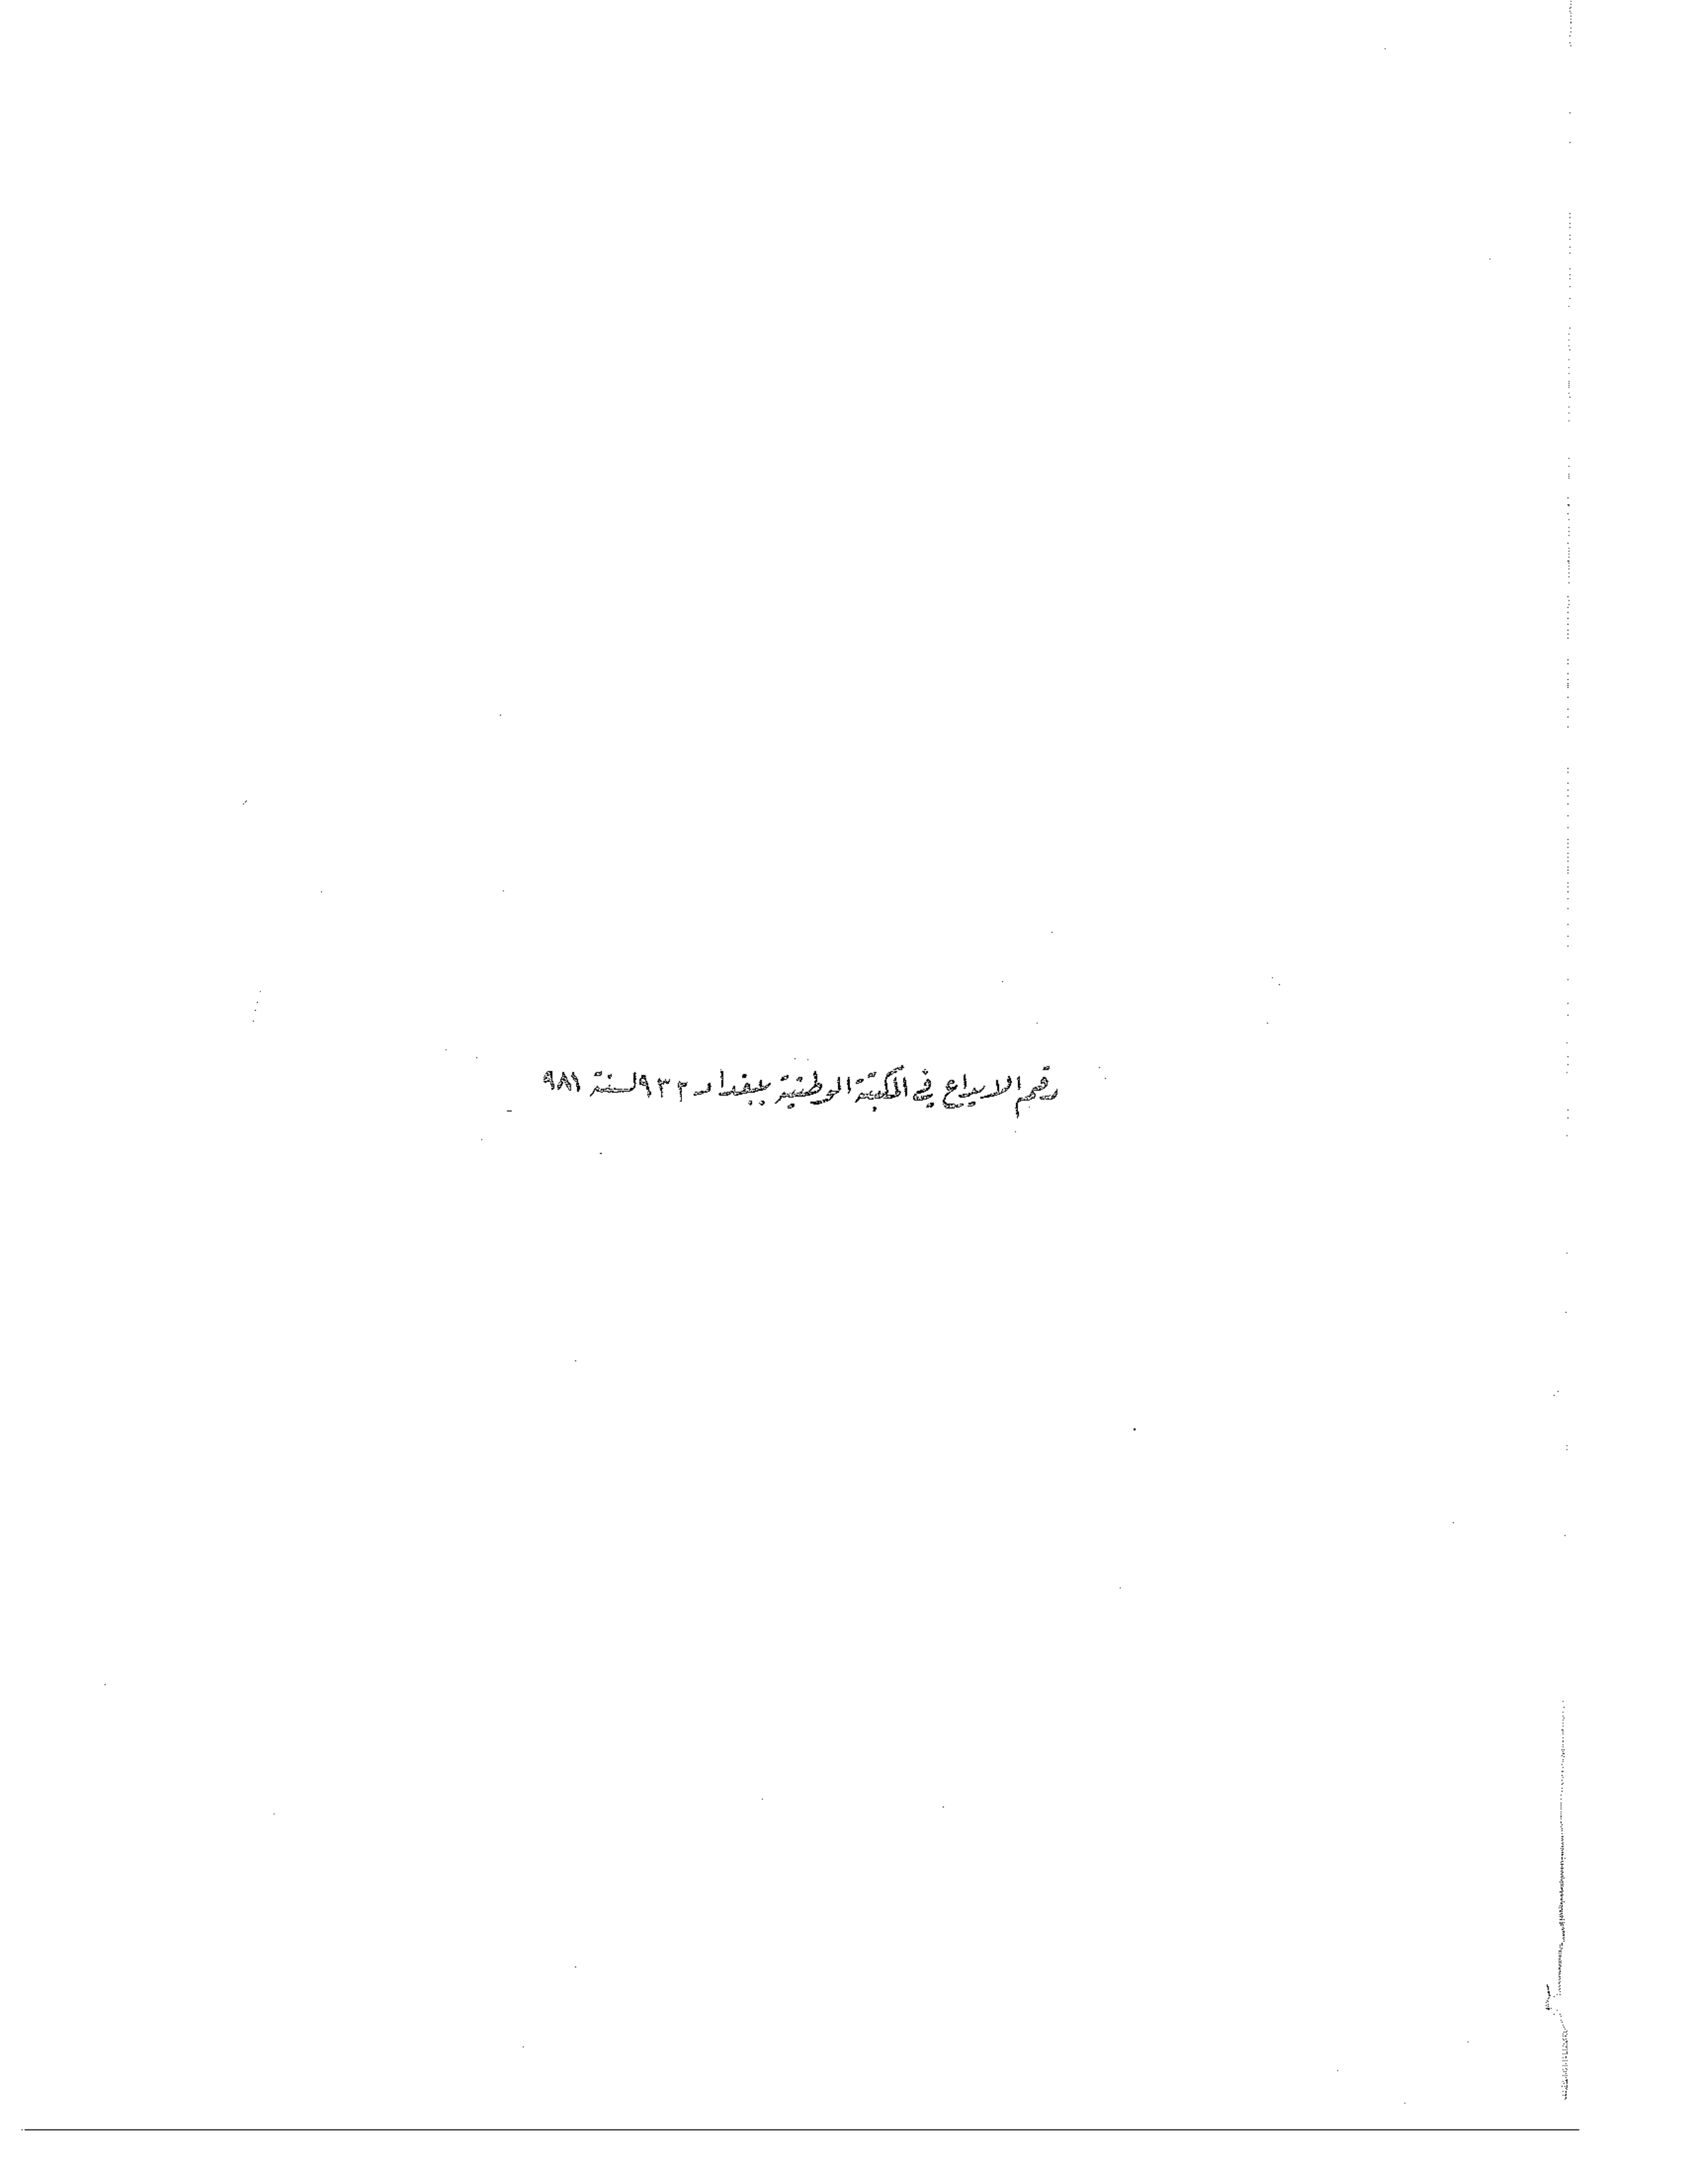 رقم الايداع في المكتبة الوطنية ببغداد ٩٣٢ لسنة ٩٨١